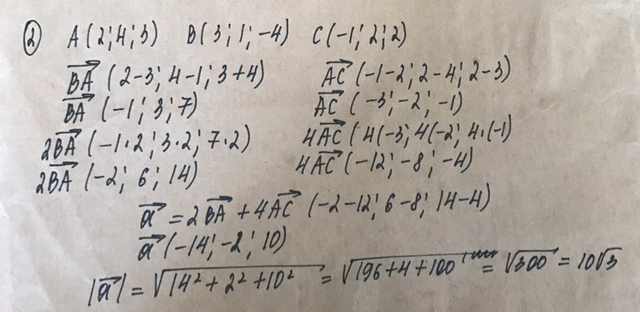 ② A(2;4;3) B(3;1;-4) C(-1;2;2)
BA (2-3; 4-1; 3+4) AC (-1-2; 2-4; 2-3)
BA (-1; 3; 7) AC (-3; -2; -1)
2BA (-1·2; 3·2; 7·2) 4AC (4(-3; 4(-2; 4·(-1)
2BA (-2; 6; 14) 4AC (-12; -8; -4)
a = 2BA + 4AC (-2-12; 6-8; 14-4)
a (-14; -2; 10)
|a| = √14² + 2² + 10² = √196+4+100 = √300 = 10√3